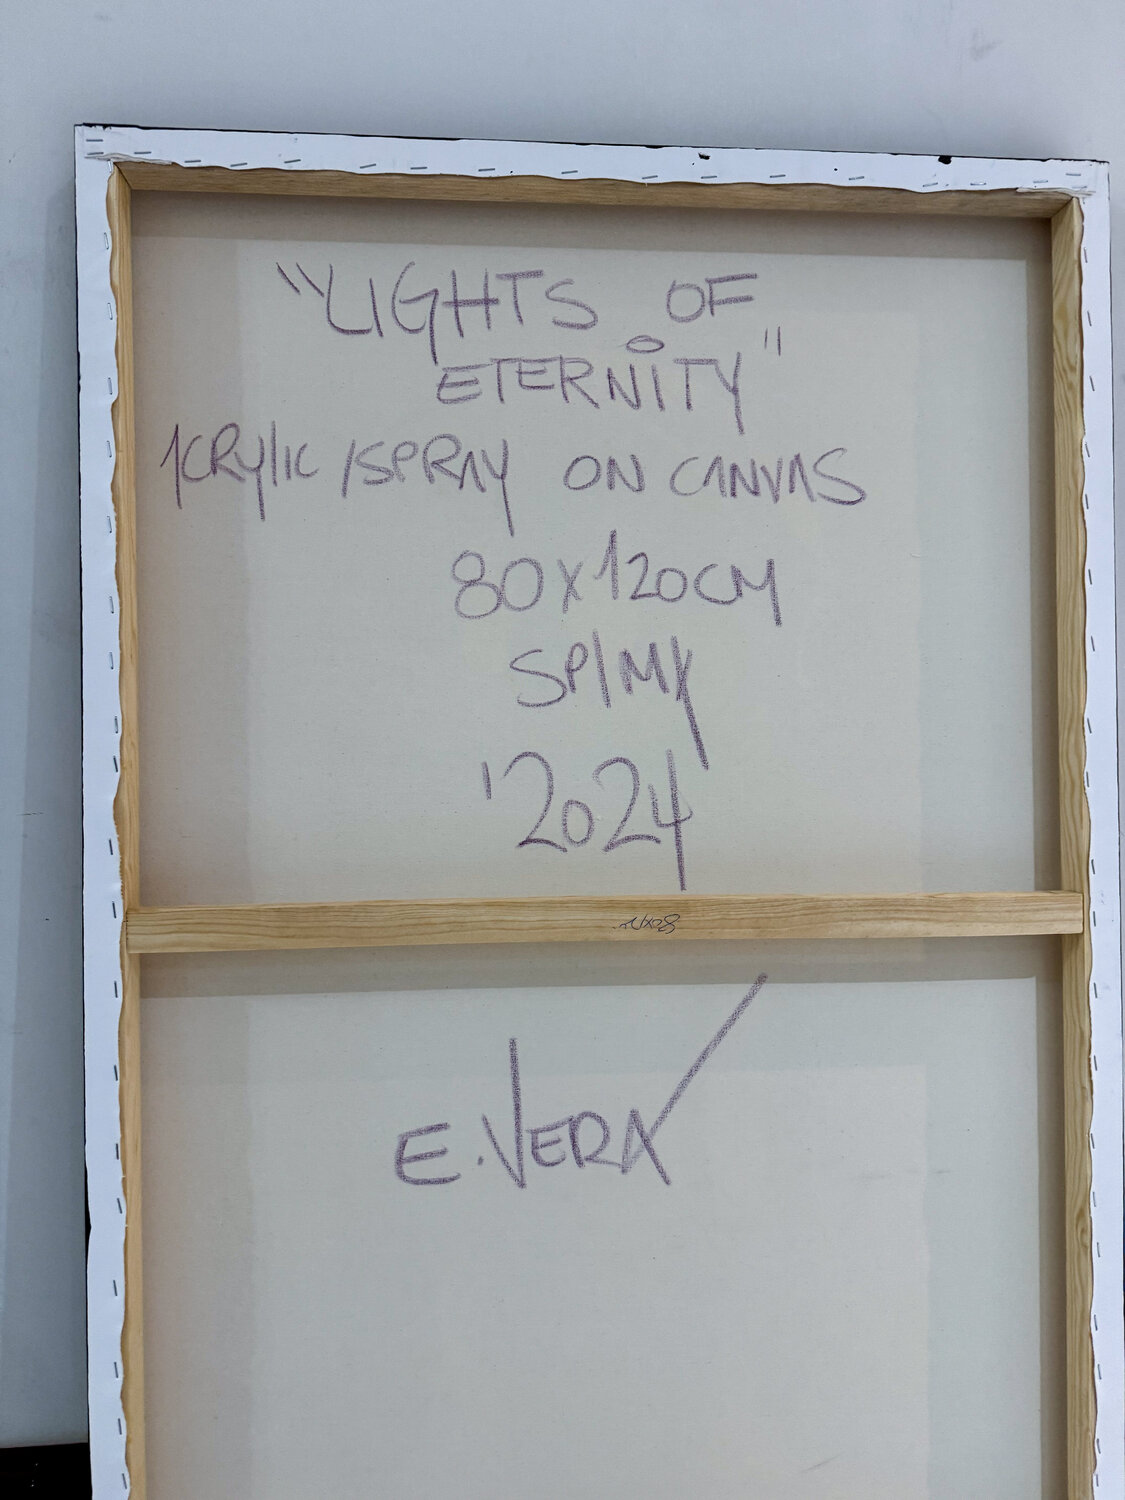 "LIGHTS OF
ETERNITY"
ACRYLIC / SPRAY ON CANVAS
80X120CM
SP/MX
'2024
E. VERA